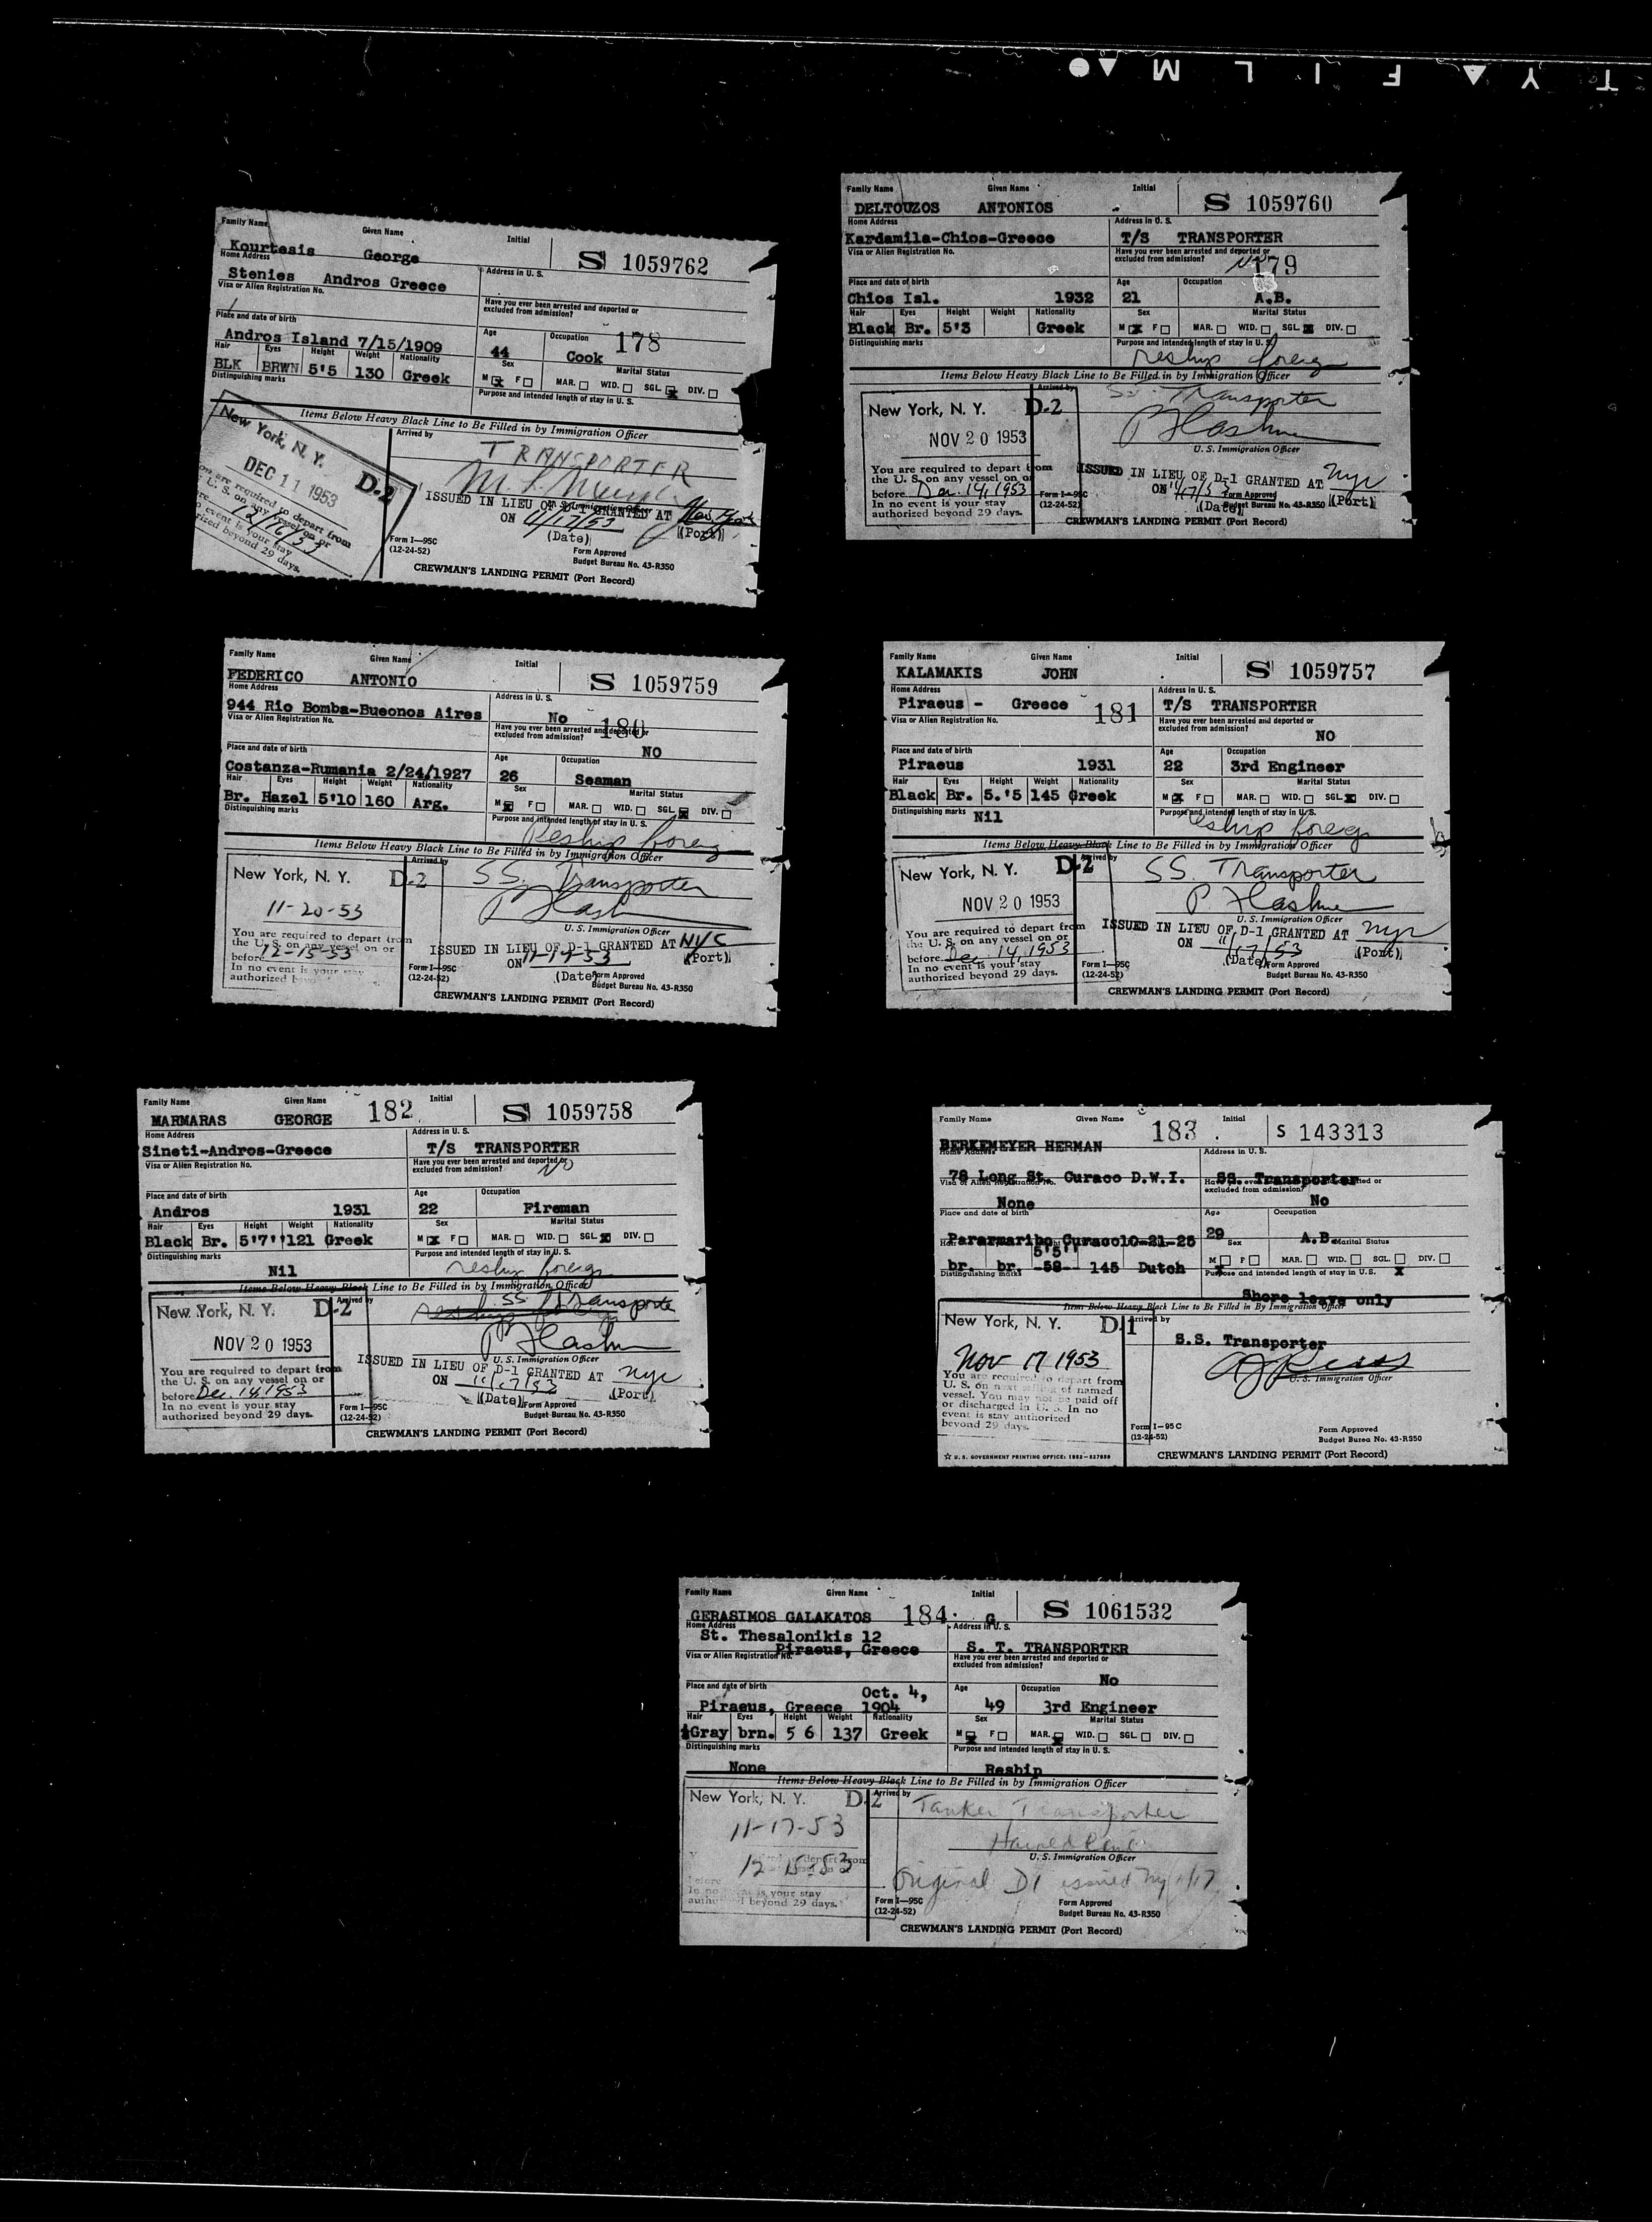 SAFETY FILM
Family Name Given Name Initial
Kourtesis George S 1059762
Home Address Address in U. S.
Stenies Andros Greece
Visa or Alien Registration No. Have you ever been arrested and deported or
excluded from admission?
178
Place and date of birth Age Occupation
Andros Island 7/15/1909 44 Cook
Hair Eyes Height Weight Nationality Sex Marital Status
BLK BRWN 5'5 130 Greek M F MAR. WID. SGL. DIV.
Distinguishing marks Purpose and intended length of stay in U. S.
Items Below Heavy Black Line to Be Filled in by Immigration Officer
New York, N. Y. D-2 Arrived by
TRANSPORTER
DEC 11 1953
are required to depart from
U. S. on any vessel on or
event is your stay
beyond 29 days.
ISSUED IN LIEU OF D-1 GRANTED AT
ON 11/17/53
(Date) (Port)
Form I—95C Form Approved
(12-24-52) Budget Bureau No. 43-R350
CREWMAN'S LANDING PERMIT (Port Record)
Family Name Given Name Initial
DELTOUZOS ANTONIOS S 1059760
Home Address Address in U. S.
Kardamila-Chios-Greece T/S TRANSPORTER
Visa or Alien Registration No. Have you ever been arrested and deported or
excluded from admission? No
179
Place and date of birth Age Occupation
Chios Isl. 1932 21 A.B.
Hair Eyes Height Weight Nationality Sex Marital Status
Black Br. 5'3 Greek M F MAR. WID. SGL. DIV.
Distinguishing marks Purpose and intended length of stay in U. S.
reship foreign
Items Below Heavy Black Line to Be Filled in by Immigration Officer
New York, N. Y. D-2 Arrived by
SS Transporter
NOV 20 1953
U. S. Immigration Officer
You are required to depart from
the U. S. on any vessel on or
before Dec. 14, 1953
In no event is your stay
authorized beyond 29 days.
ISSUED IN LIEU OF D-1 GRANTED AT nyc
ON 11/17/53
(Date) (Port)
Form I—95C Form Approved
(12-24-52) Budget Bureau No. 43-R350
CREWMAN'S LANDING PERMIT (Port Record)
Family Name Given Name Initial
FEDERICO ANTONIO S 1059759
Home Address Address in U. S.
944 Rio Bomba-Bueonos Aires No
Visa or Alien Registration No. Have you ever been arrested and deported or
excluded from admission?
180
NO
Place and date of birth Age Occupation
Costanza-Rumania 2/24/1927 26 Seaman
Hair Eyes Height Weight Nationality Sex Marital Status
Br. Hazel 5'10 160 Arg. M F MAR. WID. SGL. DIV.
Distinguishing marks Purpose and intended length of stay in U. S.
Reship foreig
Items Below Heavy Black Line to Be Filled in by Immigration Officer
New York, N. Y. D-2 Arrived by
SS. Transporter
11-20-53
U. S. Immigration Officer
You are required to depart from
the U. S. on any vessel on or
before 12-15-53
In no event is your stay
authorized
ISSUED IN LIEU OF D-1 GRANTED AT NYC
ON 11-17-53
(Date) (Port)
Form I—95C Form Approved
(12-24-52) Budget Bureau No. 43-R350
CREWMAN'S LANDING PERMIT (Port Record)
Family Name Given Name Initial
KALAMAKIS JOHN S 1059757
Home Address Address in U. S.
Piraeus - Greece 181 T/S TRANSPORTER
Visa or Alien Registration No. Have you ever been arrested and deported or
excluded from admission?
NO
Place and date of birth Age Occupation
Piraeus 1931 22 3rd Engineer
Hair Eyes Height Weight Nationality Sex Marital Status
Black Br. 5.'5 145 Greek M F MAR. WID. SGL. DIV.
Distinguishing marks Nil Purpose and intended length of stay in U. S.
reship foreig
Items Below Heavy Black Line to Be Filled in by Immigration Officer
New York, N. Y. D-2 Arrived by
SS. Transporter
NOV 20 1953
U. S. Immigration Officer
You are required to depart from
the U. S. on any vessel on or
before Dec 14, 1953
In no event is your stay
authorized beyond 29 days.
ISSUED IN LIEU OF D-1 GRANTED AT nyc
ON 11/17/53
(Date) (Port)
Form I—95C Form Approved
(12-24-52) Budget Bureau No. 43-R350
CREWMAN'S LANDING PERMIT (Port Record)
Family Name Given Name Initial
MARMARAS GEORGE 182 S 1059758
Home Address Address in U. S.
Sineti-Andros-Greece T/S TRANSPORTER
Visa or Alien Registration No. Have you ever been arrested and deported or
excluded from admission? NO
Place and date of birth Age Occupation
Andros 1931 22 Fireman
Hair Eyes Height Weight Nationality Sex Marital Status
Black Br. 5'7'' 121 Greek M F MAR. WID. SGL. DIV.
Distinguishing marks Purpose and intended length of stay in U. S.
Nil reship foreig
Items Below Heavy Black Line to Be Filled in by Immigration Officer
New York, N. Y. D-2 Arrived by
SS. Transporte
NOV 20 1953
U. S. Immigration Officer
You are required to depart from
the U. S. on any vessel on or
before Dec. 14, 1953
In no event is your stay
authorized beyond 29 days.
ISSUED IN LIEU OF D-1 GRANTED AT nyc
ON 11/17/53
(Date) (Port)
Form I—95C Form Approved
(12-24-52) Budget Bureau No. 43-R350
CREWMAN'S LANDING PERMIT (Port Record)
Family Name Given Name Initial
BERKEMEYER HERMAN 183 S 143313
Home Address Address in U. S.
78 Long St. Curaco D.W.I. SS. Transporter
Visa or Alien Registration No. Have you ever been arrested and deported or
excluded from admission?
None No
Place and date of birth Age Occupation
Pararmaribo Curaco10-21-25 29 A.B.
Marital Status
5'5''
br. br. 58 145 Dutch Sex M F MAR. WID. SGL. DIV.
Distinguishing marks Purpose and intended length of stay in U. S.
Shore leave only
Items Below Heavy Black Line to Be Filled in By Immigration Officer
New York, N. Y. D-1 Arrived by
S.S. Transporter
Nov 17 1953
U. S. Immigration Officer
You are required to depart from
U. S. on next sailing of named
vessel. You may not be paid off
or discharged in U. S. In no
event is stay authorized
beyond 29 days.
Form I—95 C Form Approved
(12-24-52) Budget Burea No. 43-R350
☆ U. S. GOVERNMENT PRINTING OFFICE: 1952—
CREWMAN'S LANDING PERMIT (Port Record)
Family Name Given Name Initial
GERASIMOS GALAKATOS 184 G. S 1061532
Home Address Address in U. S.
St. Thesalonikis 12
Piraeus, Greece S. T. TRANSPORTER
Visa or Alien Registration No. Have you ever been arrested and deported or
excluded from admission?
No
Place and date of birth Age Occupation
Oct. 4,
Piraeus, Greece 1904 49 3rd Engineer
Hair Eyes Height Weight Nationality Sex Marital Status
½Gray brn. 5 6 137 Greek M F MAR. WID. SGL. DIV.
Distinguishing marks Purpose and intended length of stay in U. S.
None Reship
Items Below Heavy Black Line to Be Filled in by Immigration Officer
New York, N. Y. D-2 Arrived by
Tanker Transporter
11-17-53
U. S. Immigration Officer
depart from
12-15-53
before
In no is your stay
beyond 29 days.
Original D1 issued ny 11/17
Form I—95C Form Approved
(12-24-52) Budget Bureau No. 43-R350
CREWMAN'S LANDING PERMIT (Port Record)